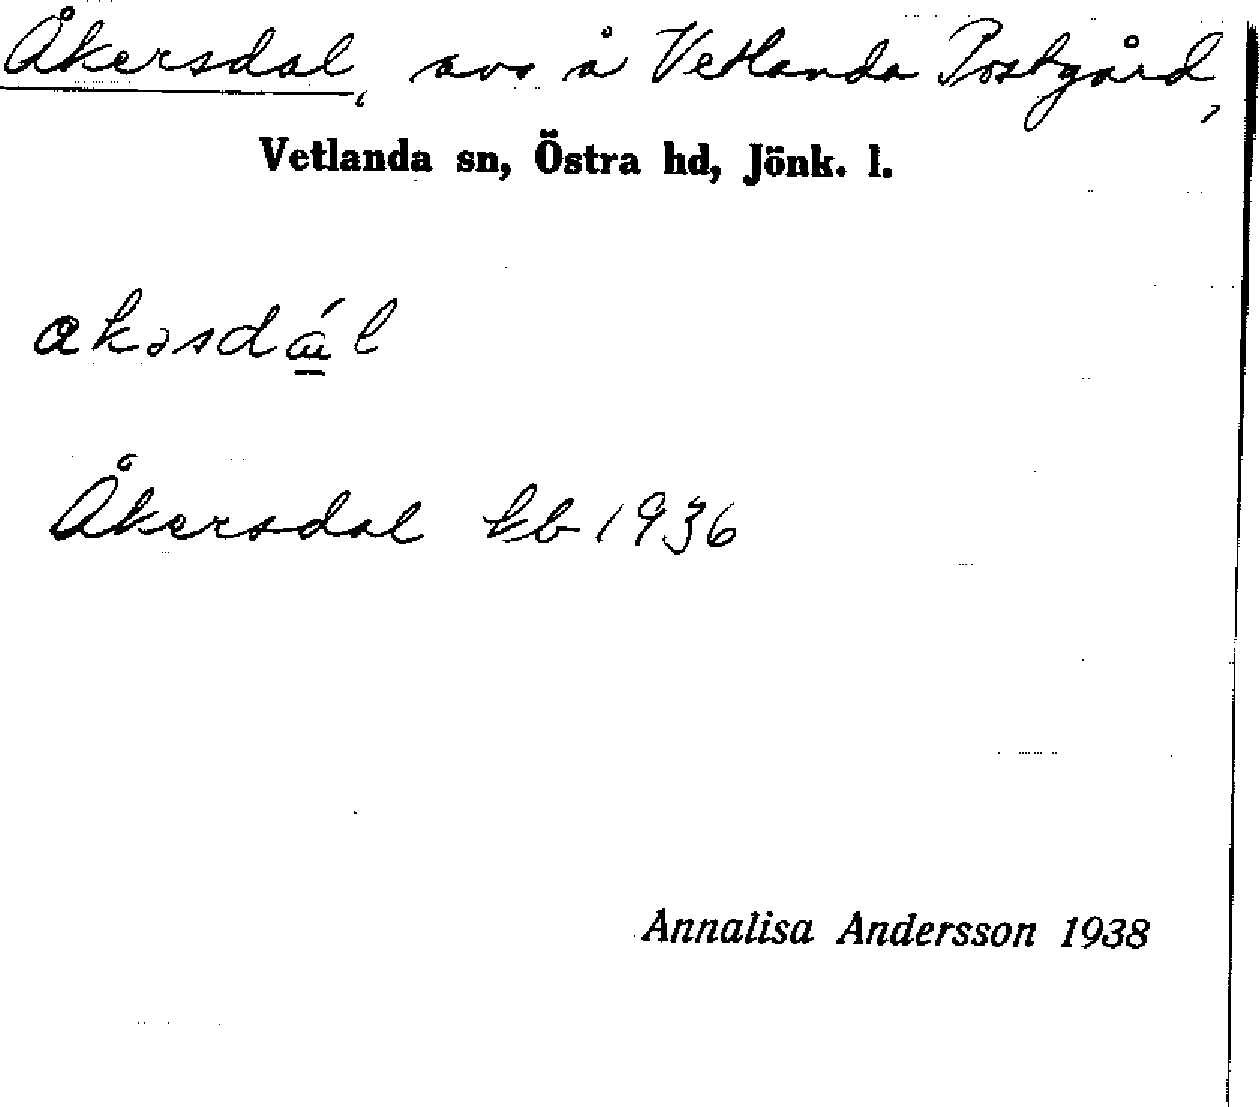 Åkersdal, avs å Vetlanda Postgård,
Vetlanda sn, Östra hd, Jönk. l.
akəsdál
Åkersdal kb 1936
Annalisa Andersson 1938